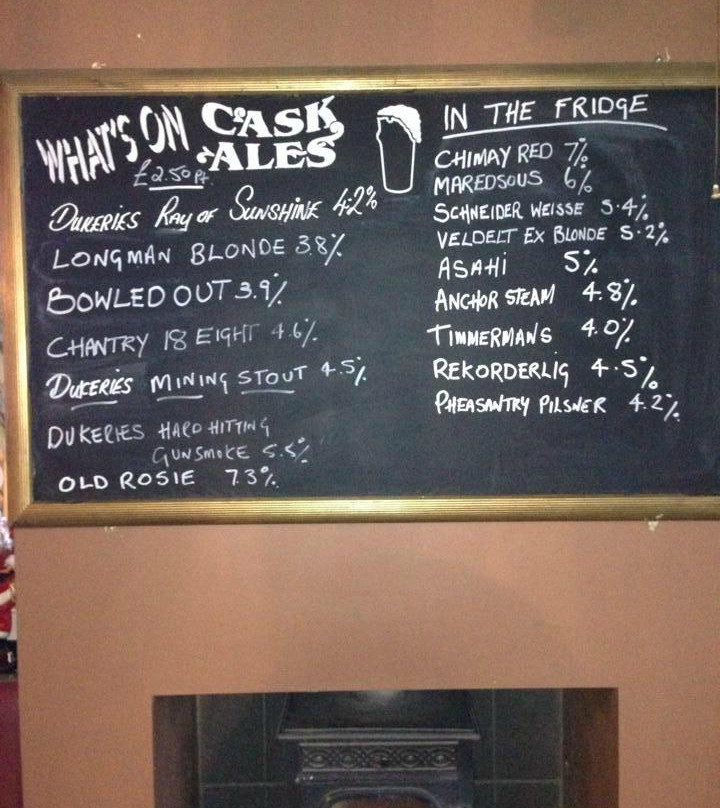 WHAT'S ON CASK ALES
£2.50 Pt
DUKERIES RAY OF SUNSHINE 4.2%
LONGMAN BLONDE 3.8%
BOWLED OUT 3.9%
CHANTRY 18 EIGHT 4.6%
DUKERIES MINING STOUT 4.5%
DUKERIES HARD HITTING
GUNSMOKE 5.5%
OLD ROSIE 7.3%
IN THE FRIDGE
CHIMAY RED 7%
MAREDSOUS 6%
SCHNEIDER WEISSE 5.4%
VELDELT EX BLONDE 5.2%
ASAHI 5%
ANCHOR STEAM 4.8%
TIMMERMANS 4.0%
REKORDERLIG 4.5%
PHEASANTRY PILSNER 4.2%